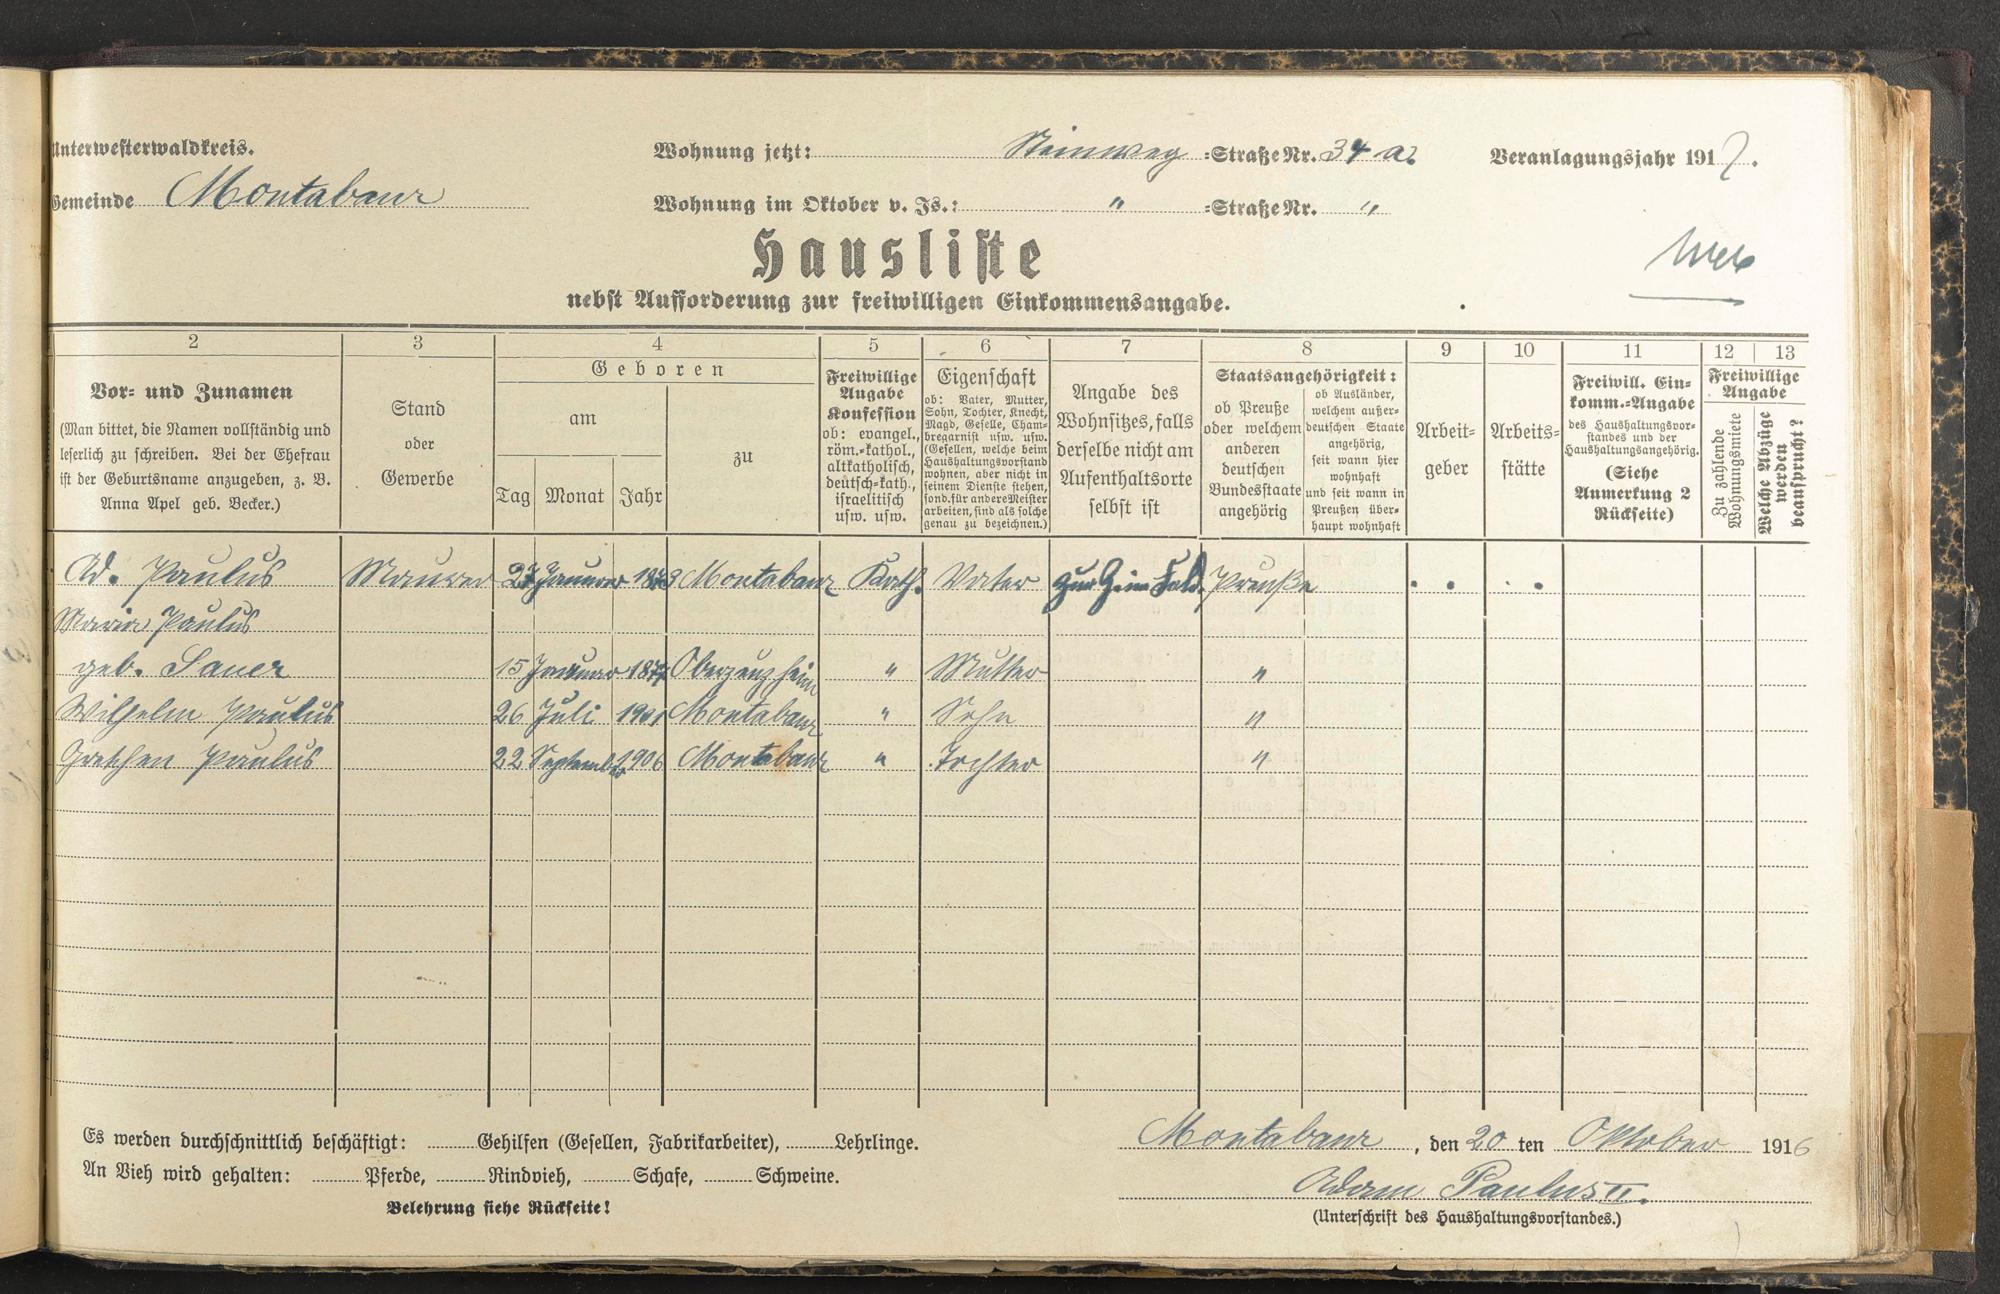 Unterwesterwaldkreis.
Gemeinde Montabaur
Wohnung jetzt: Steinweg =Straße Nr. 34 a.
Wohnung im Oktober v. Js.: " =Straße Nr. "
Veranlagungsjahr 1917.
Hausliste
nebst Aufforderung zur freiwilligen Einkommensangabe.
2 3 4 5 6 7 8 9 10 11 12 13
Vor- und Zunamen
(Man bittet, die Namen vollständig und
leserlich zu schreiben. Bei der Ehefrau
ist der Geburtsname anzugeben, z. B.
Anna Apel geb. Becker.)
Stand
oder
Gewerbe
Geboren
am
Tag Monat Jahr
zu
Freiwillige
Angabe
Konfession
ob: evangel.,
röm.-kathol.,
altkatholisch,
deutsch-kath.,
israelitisch
usw. usw.
Eigenschaft
ob: Vater, Mutter,
Sohn, Tochter, Knecht,
Magd, Geselle, Cham-
bregarnist usw. usw.
(Gesellen, welche beim
Haushaltungsvorstand
wohnen, aber nicht in
seinem Dienste stehen,
sond. für andere Meister
arbeiten, sind als solche
genau zu bezeichnen.)
Angabe des
Wohnsitzes, falls
derselbe nicht am
Aufenthaltsorte
selbst ist
Staatsangehörigkeit:
ob Preuße
oder welchem
anderen
deutschen
Bundesstaate
angehörig
ob Ausländer,
welchem außer-
deutschen Staate
angehörig,
seit wann hier
wohnhaft
und seit wann in
Preußen über-
haupt wohnhaft
Arbeit-
geber
Arbeits-
stätte
Freiwill. Ein-
komm.-Angabe
des Haushaltungsvor-
standes und der
Haushaltungsangehörig.
(Siehe
Anmerkung 2
Rückseite)
Freiwillige
Angabe
Zu zahlende
Wohnungsmiete
Welche Abzüge
werden
beansprucht?
Ad. Paulus Maurer Januar Montabaur Kath. Vater Preuße
Maria Paulus
geb. Sauer 15 Januar Oberzeuzheim " Mutter "
Wilhelm Paulus 26 Juli 1901 Montabaur " Sohn "
Gretchen Paulus 22 September 1906 Montabaur " Tochter "
Es werden durchschnittlich beschäftigt: Gehilfen (Gesellen, Fabrikarbeiter), Lehrlinge.
An Vieh wird gehalten: Pferde, Rindvieh, Schafe, Schweine.
Belehrung siehe Rückseite!
Montabaur, den 20 ten Oktober 1916
Adam Paulus II.
(Unterschrift des Haushaltungsvorstandes.)